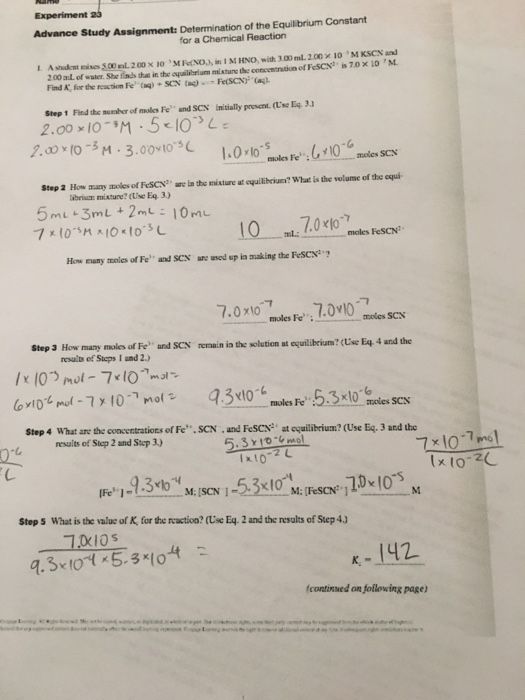 Experiment 23
Advance Study Assignment: Determination of the Equilibrium Constant
for a Chemical Reaction
1. A student mixes 5.00 mL 2.00 × 10⁻³ M Fe(NO₃)₃ in 1 M HNO₃ with 3.00 mL 2.00 × 10⁻³ M KSCN and
2.00 mL of water. She finds that in the equilibrium mixture the concentration of FeSCN²⁺ is 7.0 × 10⁻⁵ M.
Find Kc for the reaction Fe³⁺(aq) + SCN⁻(aq) ⇌ Fe(SCN)²⁺(aq).
Step 1 Find the number of moles Fe³⁺ and SCN⁻ initially present. (Use Eq. 3.)
2.00×10⁻³M · 5×10⁻³ L =
2.00×10⁻³M · 3.00×10⁻³L 1.0×10⁻⁵ moles Fe³⁺; 6×10⁻⁶ moles SCN⁻
Step 2 How many moles of FeSCN²⁺ are in the mixture at equilibrium? What is the volume of the equi-
librium mixture? (Use Eq. 3.)
5mL + 3mL + 2mL = 10mL
7×10⁻⁵M × 10×10⁻³L 10 mL; 7.0×10⁻⁷ moles FeSCN²⁺
How many moles of Fe³⁺ and SCN⁻ are used up in making the FeSCN²⁺?
7.0×10⁻⁷ moles Fe³⁺; 7.0×10⁻⁷ moles SCN⁻
Step 3 How many moles of Fe³⁺ and SCN⁻ remain in the solution at equilibrium? (Use Eq. 4 and the
results of Steps 1 and 2.)
1×10⁻⁵ mol − 7×10⁻⁷ mol =
6×10⁻⁶ mol − 7×10⁻⁷ mol = 9.3×10⁻⁶ moles Fe³⁺; 5.3×10⁻⁶ moles SCN⁻
Step 4 What are the concentrations of Fe³⁺, SCN⁻, and FeSCN²⁺ at equilibrium? (Use Eq. 3 and the
results of Step 2 and Step 3.)
5.3×10⁻⁶ mol 7×10⁻⁷ mol
1×10⁻²L 1×10⁻²L
[Fe³⁺] = 9.3×10⁻⁴ M; [SCN⁻] = 5.3×10⁻⁴ M; [FeSCN²⁺] 7.0×10⁻⁵ M
Step 5 What is the value of Kc for the reaction? (Use Eq. 2 and the results of Step 4.)
7.0×10⁻⁵
9.3×10⁻⁴ × 5.3×10⁻⁴ =
Kc = 142
(continued on following page)